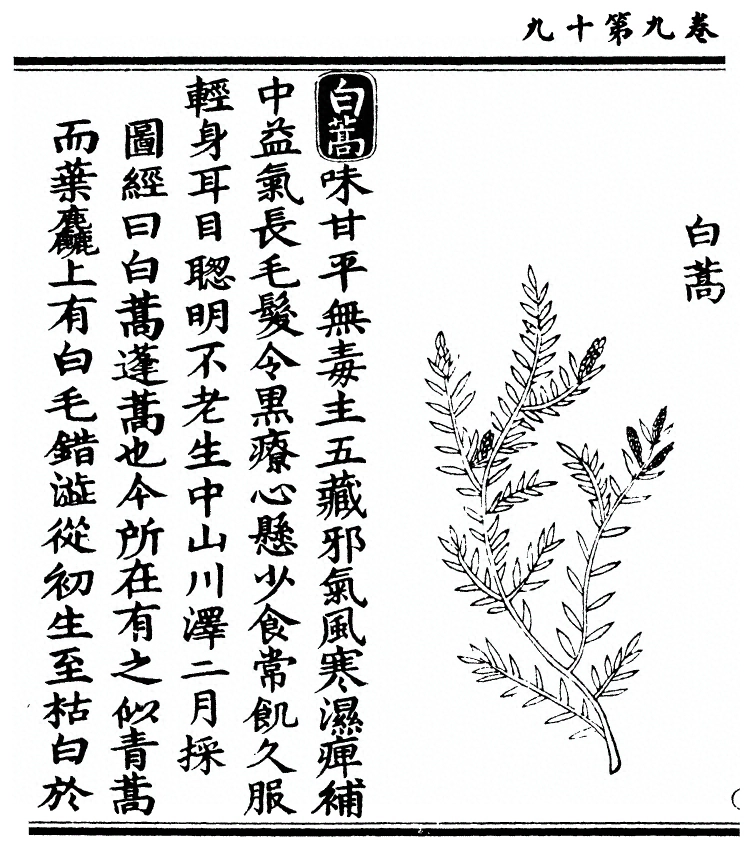 卷九第十九
白蒿
白蒿味甘平無毒主五藏邪氣風寒濕痺補
中益氣長毛髮令黑療心懸少食常飢久服
輕身耳目聰明不老生中山川澤二月採
圖經曰白蒿蓬蒿也今所在有之似青蒿
而葉麤上有白毛錯澁從初生至枯白於